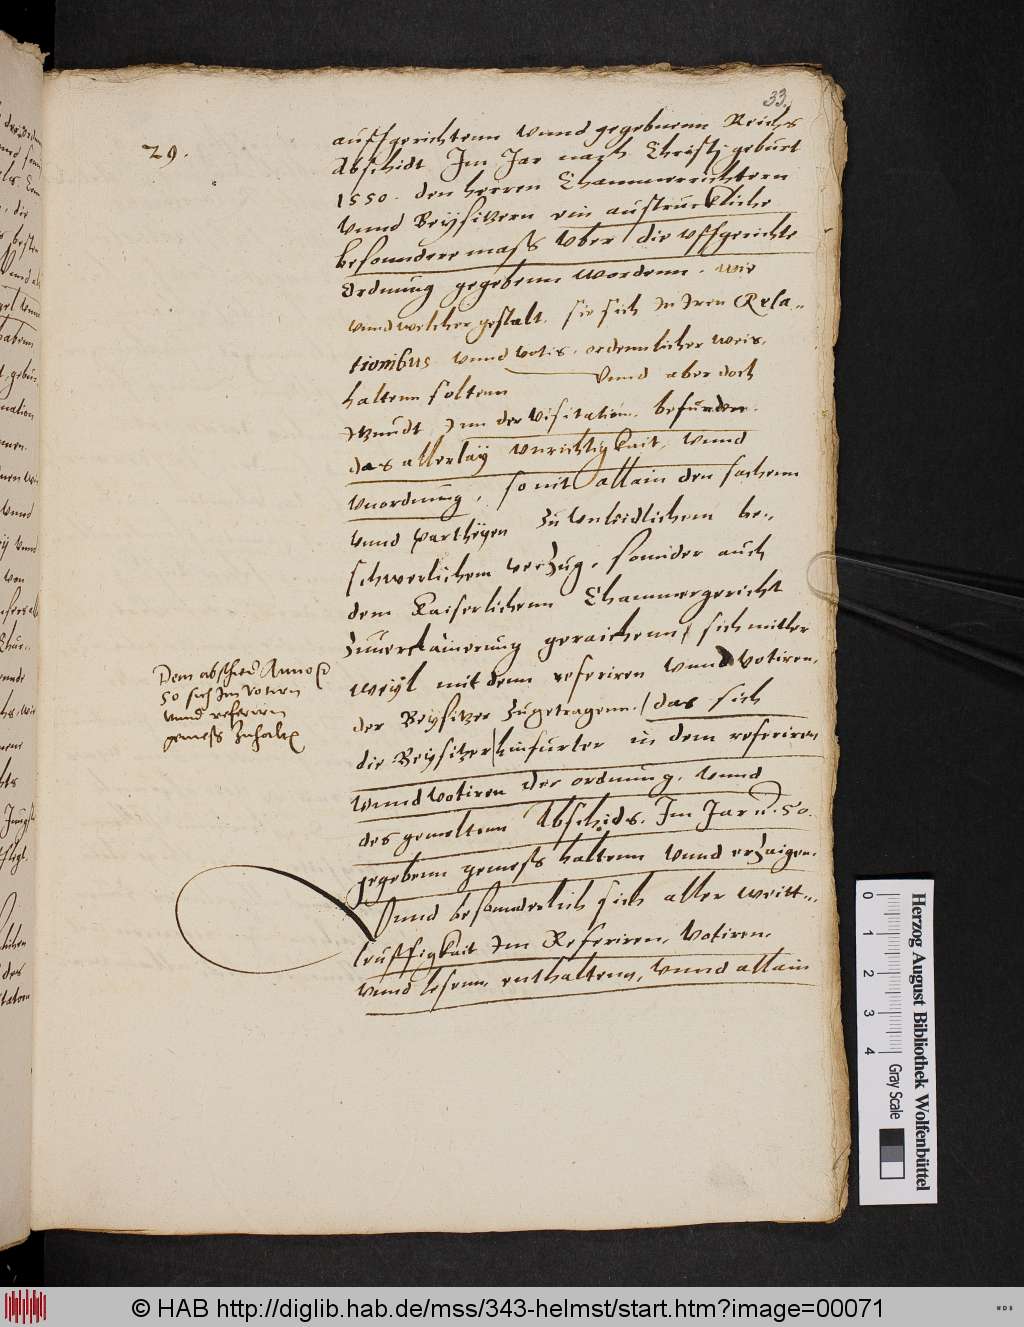 33.
29.
auffgerichtenn vnnd gegebnenn Reichs
Abschidt Im Jar nach Christj geburt
1550. den herren Chammerrichtern
vnnd Beysitzern ein austruckliche
besonndere mass vber die vffgerichte
Ordnung gegebenn wordenn. wie
vnnd welcher gestalt. sie sich in iren Rela-
tionibus vnnd votis. ordennlicher weis.
haltenn soltenn Vnnd aber doch
itzundt Inn der Visitation. befunden.
das allerlaÿ vnrichtigkait, vnnd
vnordnung, so nit allain den sachenn
vnnd partheÿen zu vnleidlichem be-
schwerlichem verzug, sonnder auch
dem Kaiserlichenn Chammergericht
zuuerclainerung geraichenn, sich mitler
weÿl mit dem referiren vnnd votiren,
der Beysitzer zugetragenn, das sich
die Beysitzer hinfurter in dem referiren
vnnd votiren der ordnung, vnnd
des gemeltenn Abschids. Im Jar 50.
gegebenn gemess haltenn vnnd erzaigen.
Vnnd besonnderlich sich aller weitt-
leuffigkait im Referiren, Votiren,
vnnd lesenn, enthaltenn, vnnd allain
Dem abschied Anno
50 sich Im votirn
vnnd referirn
gemess zuhalten
Herzog August Bibliothek Wolfenbüttel
0 1 2 3 4
Gray Scale
© HAB http://diglib.hab.de/mss/343-helmst/start.htm?image=00071